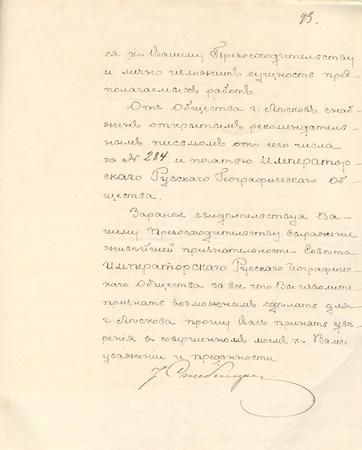 43.
ся къ Вашему Превосходительству
и лично изложитъ сущность пред-
полагаемыхъ работъ.
Отъ Общества г. Лѣсковъ снаб-
женъ открытымъ рекомендатель-
нымъ письмомъ отъ сего числа
за № 284 и печатью Император-
скаго Русскаго Географическаго Об-
щества.
Заранѣе свидѣтельствуя Ва-
шему Превосходительству выраженіе
живѣйшей признательности Совѣта
Императорскаго Русскаго Географичес-
каго Общества за все что Вы изволите
признать возможнымъ сдѣлать для
г. Лѣскова прошу Васъ принять увѣ-
ренія въ совершенномъ моемъ къ Вамъ
уваженіи и преданности